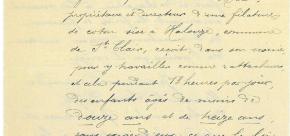 propriétaire et directeur d'une filature
de coton sise à Halouze, commune
de St Clair, reçoit, dans son usine,
pour y travailler comme rattacheurs,
et cela pendant 18 heures par jour,
des enfants âgés de moins de
douze ans et de treize ans,